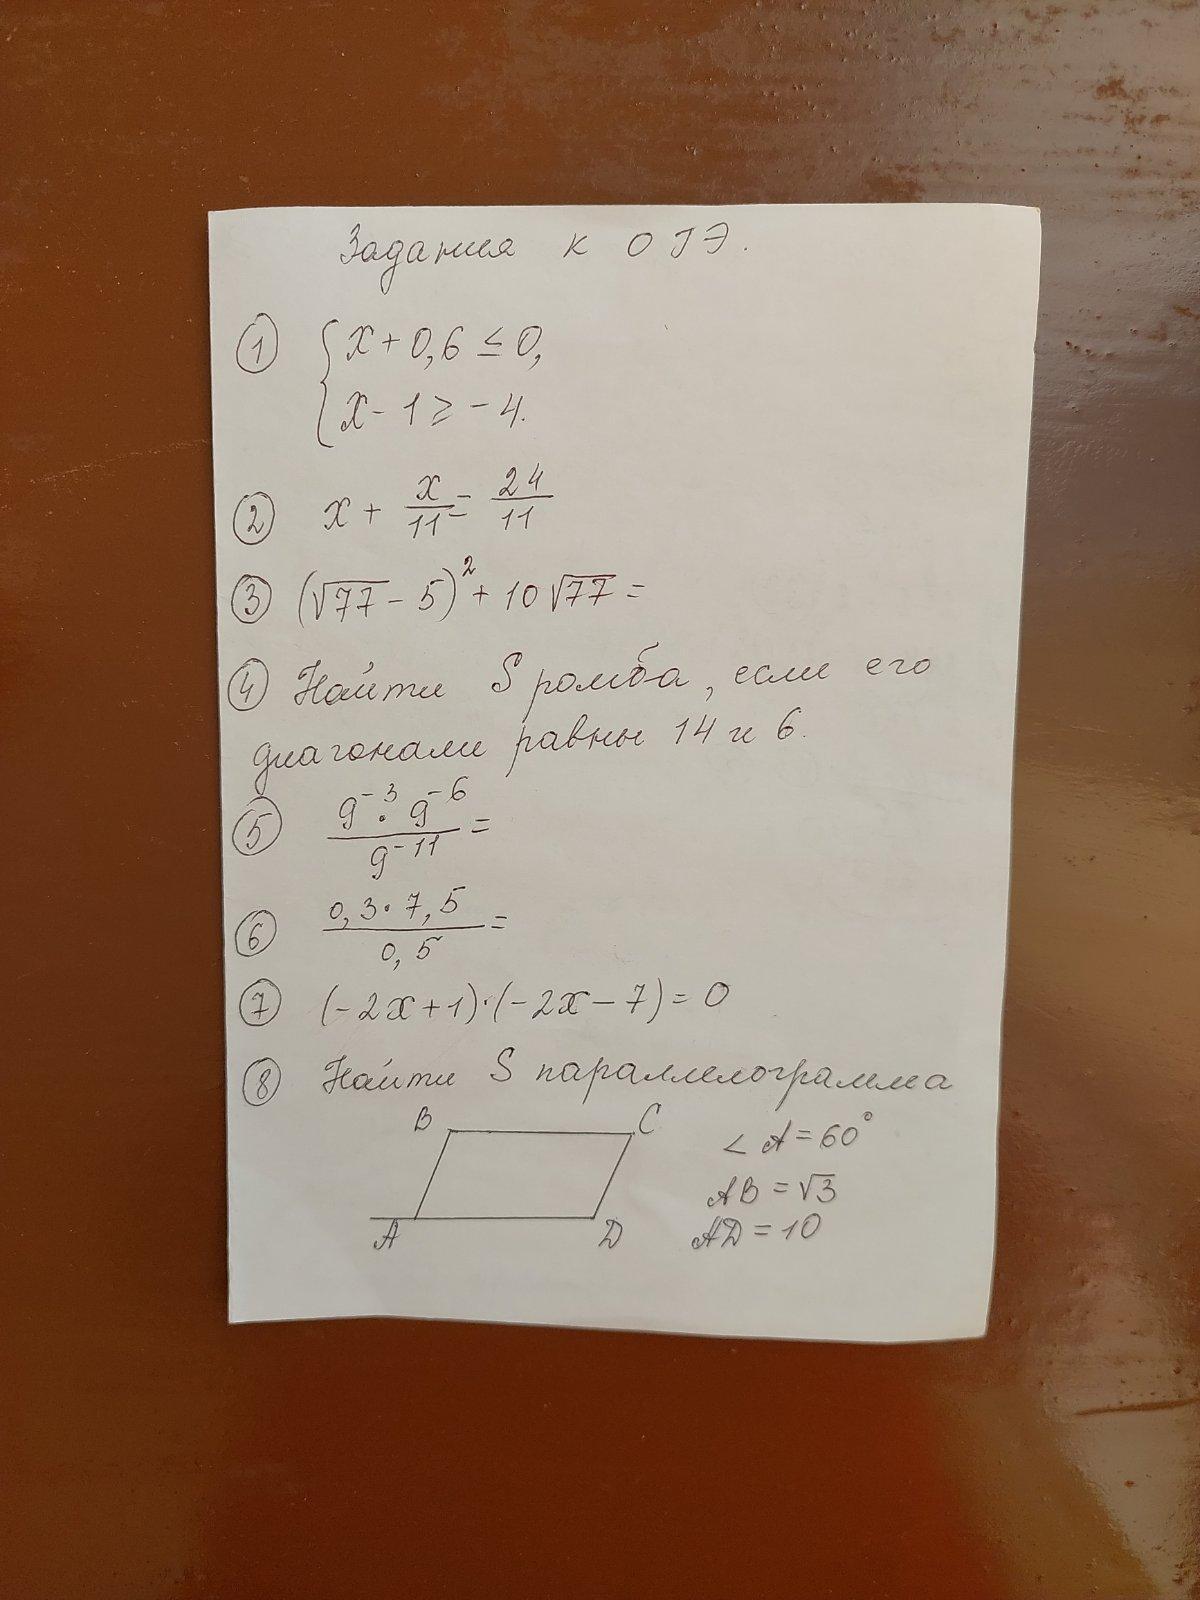 Задания к ОГЭ.
① { x + 0,6 ≤ 0,
x - 1 ≥ - 4.
② x + x/11 = 24/11
③ (√77 - 5)² + 10√77 =
④ Найти S ромба, если его
диагонали равны 14 и 6.
⑤ 9⁻³ · 9⁻⁶ / 9⁻¹¹ =
⑥ 0,3 · 7,5 / 0,5 =
⑦ (-2x + 1) · (-2x - 7) = 0
⑧ Найти S параллелограмма
B C ∠ A = 60°
AB = √3
A D AD = 10